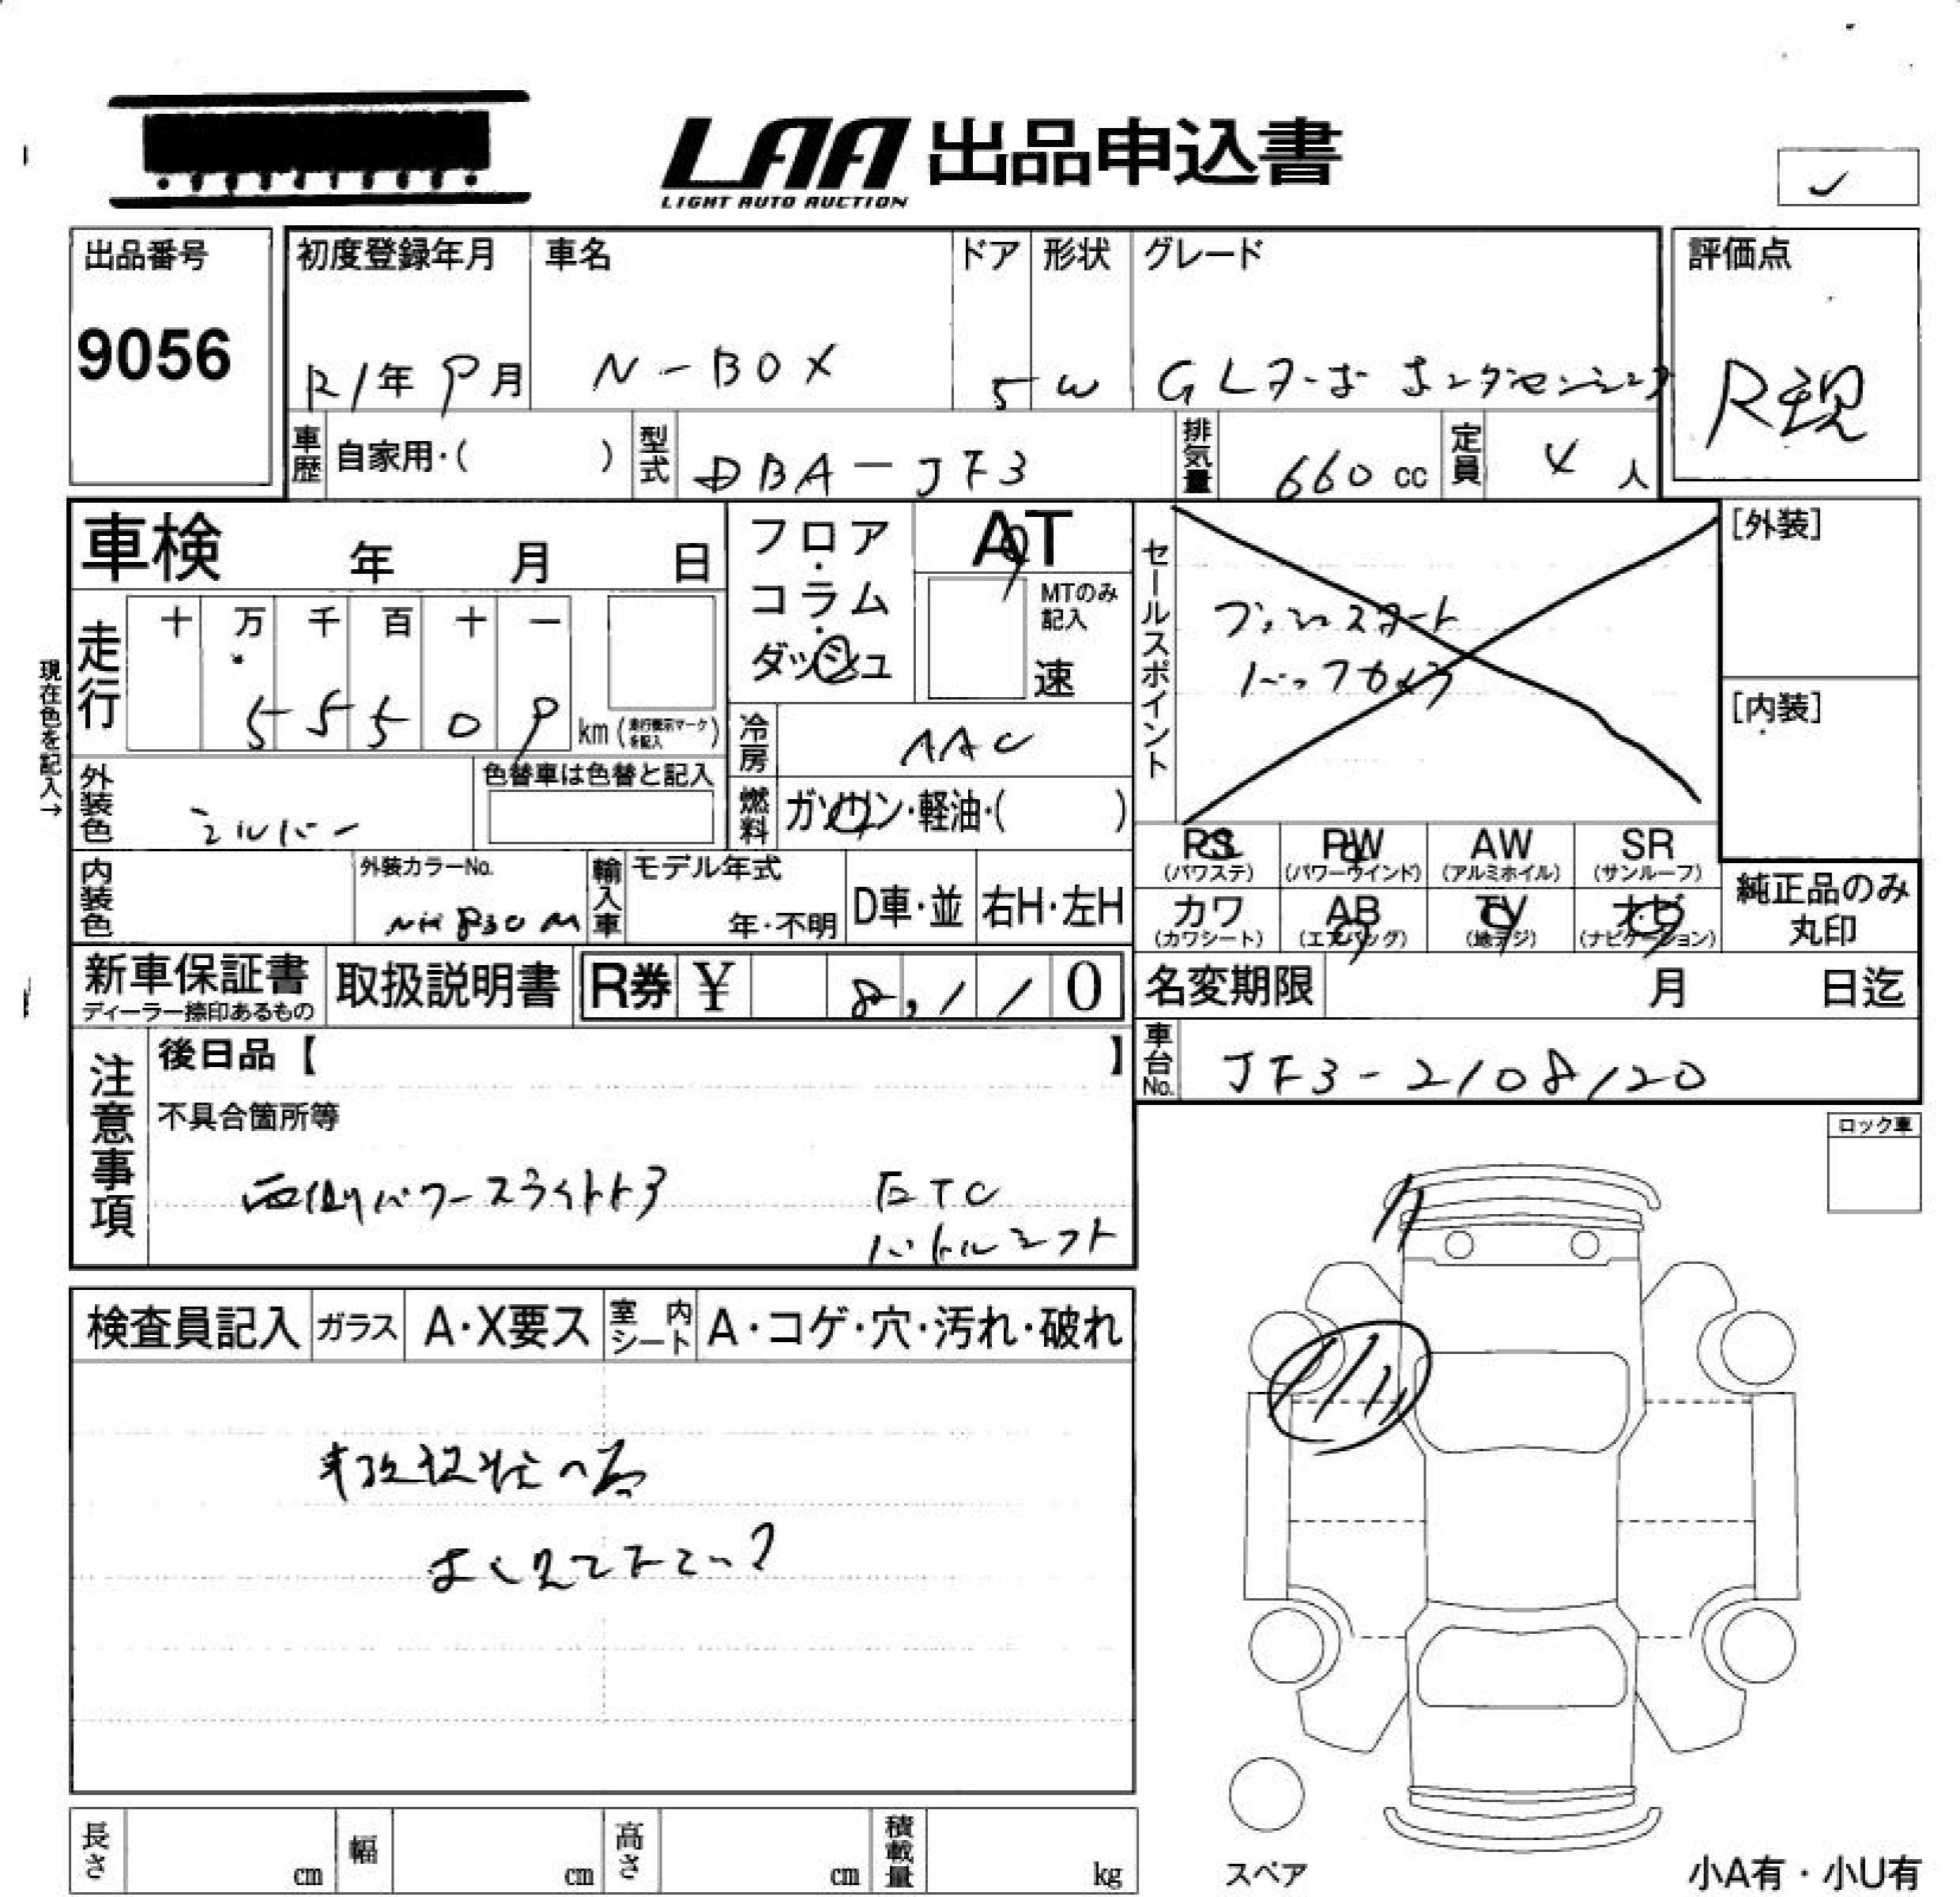 LAA 出品申込書
LIGHT AUTO AUCTION
出品番号
9056
初度登録年月
R1年 9月
車名
N-BOX
ドア
5
形状
W
グレード
GLターボ ホンダセンシング
評価点
R現
車歴
自家用・( )
型式
DBA-JF3
排気量
660 cc
定員
4 人
車検 年 月 日
フロア・コラム・ダッシュ
AT
MTのみ記入
速
走行
十 万 千 百 十 一
5 5 5 0 9 km (走行表示マークを記入)
現在色を記入→
外装色
シルバー
色替車は色替と記入
冷房
AAC
燃料
ガソリン・軽油・( )
セールスポイント
プッシュスタート
バックカメラ
[外装]
[内装]
PS
(パワステ)
PW
(パワーウインド)
AW
(アルミホイル)
SR
(サンルーフ)
カワ
(カワシート)
AB
(エアバッグ)
TV
(地デジ)
ナビ
(ナビゲーション)
純正品のみ丸印
内装色
外装カラーNo.
NH830M
輸入車
モデル年式
年・不明
D車・並
右H・左H
新車保証書
ディーラー捺印あるもの
取扱説明書
R券 ¥ 8,110
名変期限 月 日迄
車台No.
JF3-2108120
注意事項
後日品【 】
不具合箇所等
両側パワースライドドア ETC
パドルシフト
ロック車
検査員記入
ガラス
A・X要ス
室内シート
A・コゲ・穴・汚れ・破れ
事故現状の為
よく見て下さい
長さ cm
幅 cm
高さ cm
積載量 kg
スペア
小A有・小U有